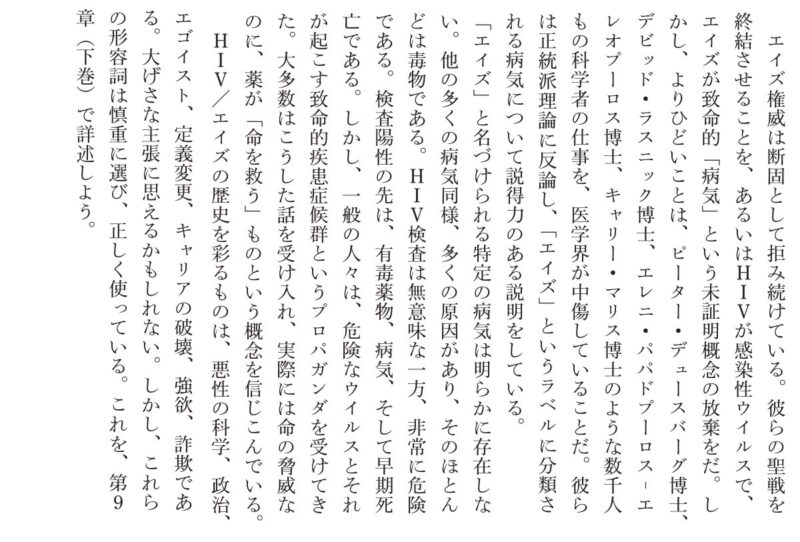 エイズ権威は断固として拒み続けている。彼らの聖戦を
終結させることを、あるいはHIVが感染性ウイルスで、
エイズが致命的「病気」という未証明概念の放棄をだ。し
かし、よりひどいことは、ピーター・デュースバーグ博士、
デビッド・ラスニック博士、エレニ・パパドプーロス-エ
レオプーロス博士、キャリー・マリス博士のような数千人
もの科学者の仕事を、医学界が中傷していることだ。彼ら
は正統派理論に反論し、「エイズ」というラベルに分類さ
れる病気について説得力のある説明をしている。
「エイズ」と名づけられる特定の病気は明らかに存在しな
い。他の多くの病気同様、多くの原因があり、そのほとん
どは毒物である。HIV検査は無意味な一方、非常に危険
である。検査陽性の先は、有毒薬物、病気、そして早期死
亡である。しかし、一般の人々は、危険なウイルスとそれ
が起こす致命的疾患症候群というプロパガンダを受けてき
た。大多数はこうした話を受け入れ、実際には命の脅威な
のに、薬が「命を救う」ものという概念を信じこんでいる。
　HIV／エイズの歴史を彩るものは、悪性の科学、政治、
エゴイスト、定義変更、キャリアの破壊、強欲、詐欺であ
る。大げさな主張に思えるかもしれない。しかし、これら
の形容詞は慎重に選び、正しく使っている。これを、第９
章（下巻）で詳述しよう。